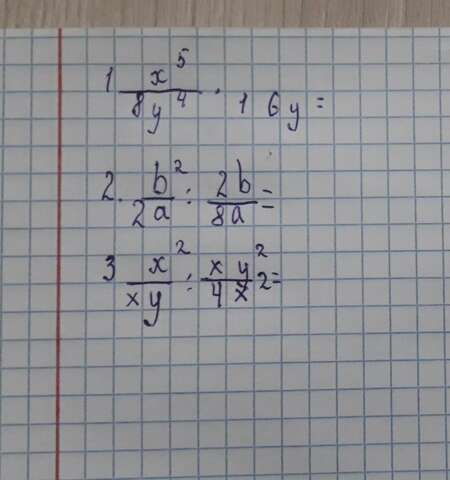 1 x⁵/8y⁴ · 16y =
2. b²/2a : 2b/8a =
3 x²/xy : xy²/4x2 =